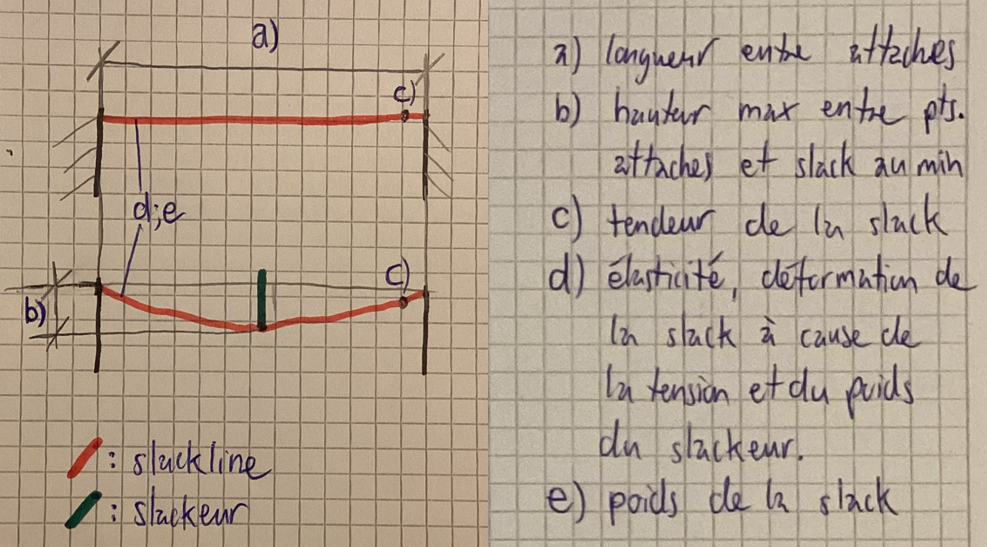 a)
c)
d;e
c)
b)
: slackline
: slackeur
a) longueur entre attaches
b) hauteur max entre pts.
attaches et slack au min
c) tendeur de la slack
d) élasticité, déformation de
la slack à cause de
la tension et du poids
du slackeur.
e) poids de la slack